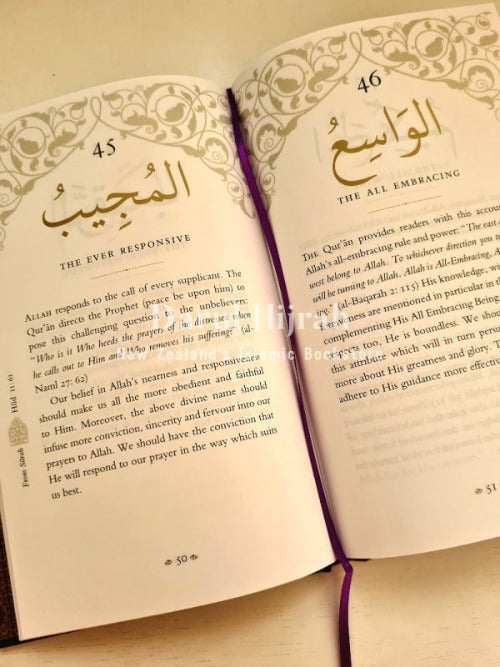 45
المُجِيبُ
THE EVER RESPONSIVE
ALLAH responds to the call of every supplicant. The
Qur'ān directs the Prophet (peace be upon him) to
pose this challenging question to the unbelievers:
"Who is it Who heeds the prayers of the distressed when
he calls out to Him and Who removes his suffering?" (al-
Naml 27: 62)
Our belief in Allah's nearness and responsiveness
should make us all the more obedient and faithful
to Him. Moreover, the above divine name should
infuse more conviction, sincerity and fervour into our
prayers to Allah. We should have the conviction that
He will respond to our prayer in the way which suits
us best.
From Sūrah Hūd 11: 61
50
46
الوَاسِعُ
THE ALL EMBRACING
THE Qur'ān provides readers with this accou
Allah's all-embracing rule and power: "The east
west belong to Allah. To whichever direction you t
will be turning to Allah. Allah is All-Embracing, A
(al-Baqarah 2: 115) His knowledge, w
are mentioned in particular in t
complementing His All Embracing Bein
too, He is boundless. We shou
this attribute which will in turn pers
more about His greatness and glory. T
adhere to His guidance more effective
51
Darul Hijrah
New Zealand's Islamic Bookstore